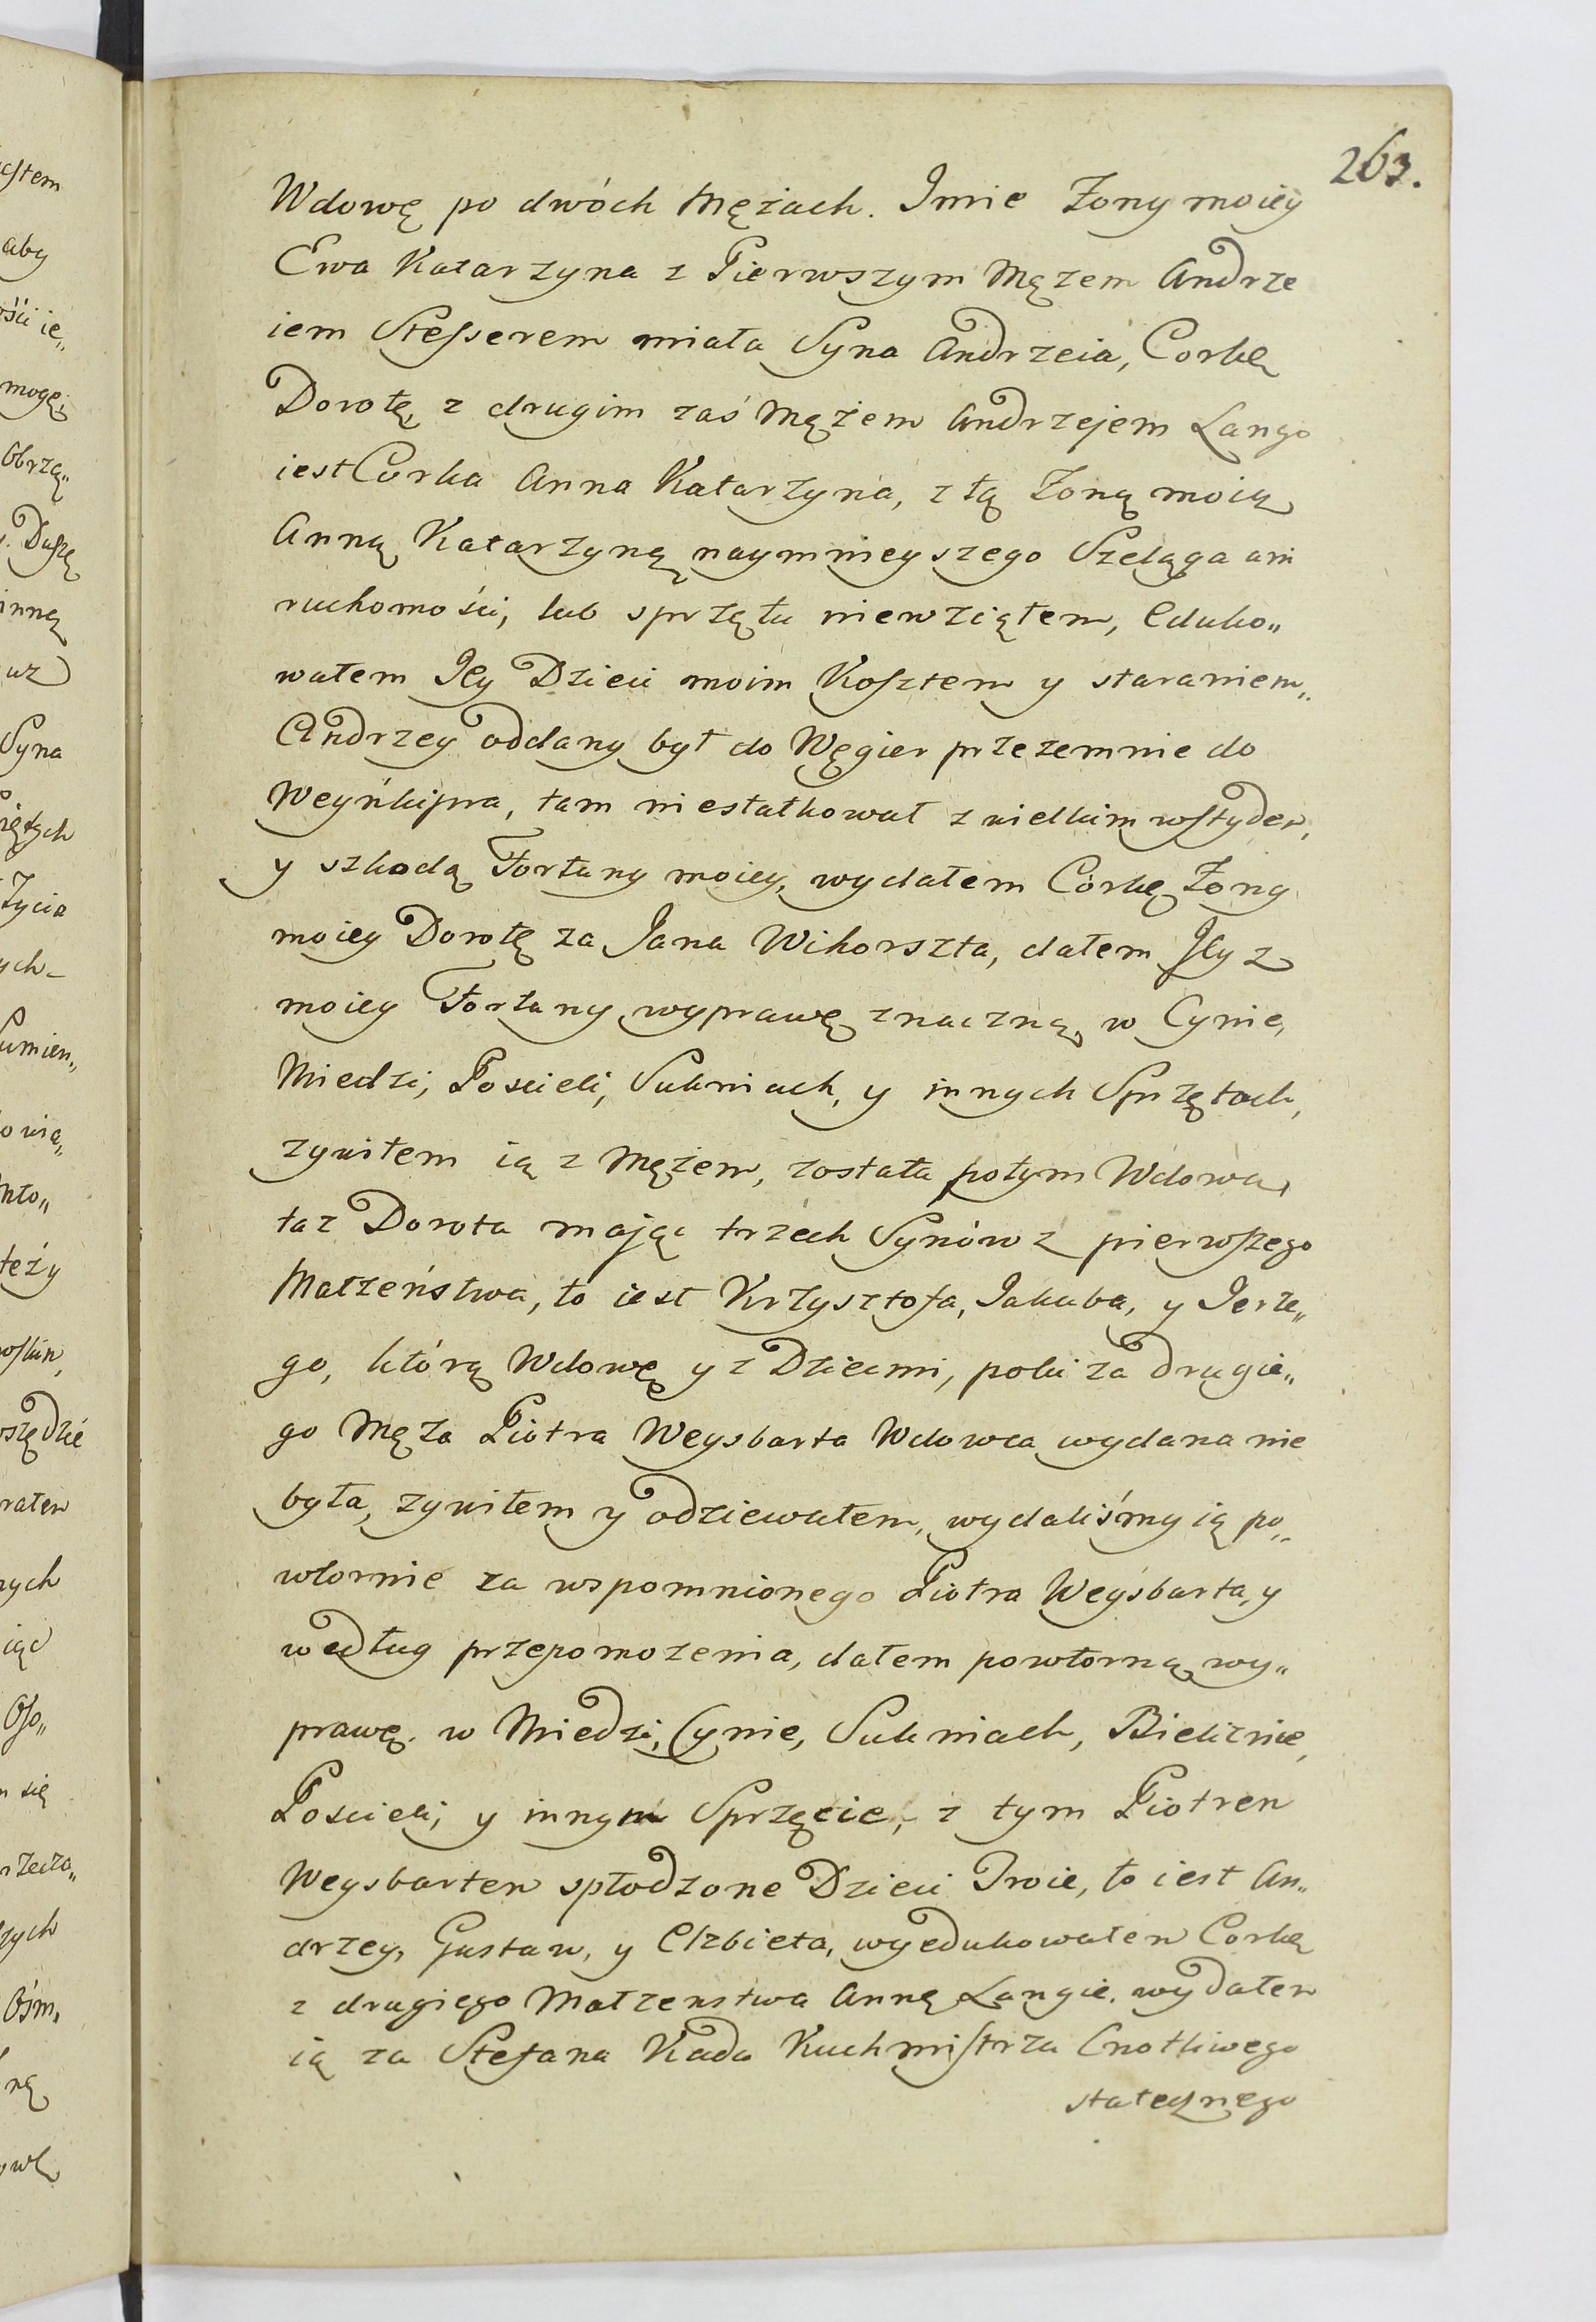 263.
Wdowę po dwóch Mężach. Imie Żony moiey
Ewa Katarzyna z Pierwszym Mężem Andrze
iem Stesserem miała Syna Andrzeia, Corkę
Dorotę, z drugim zaś Mężem Andrzejem Lango
iest Corka Anna Katarzyna, z tą Żoną moią
Anną Katarzyną naymnieyszego Szeląga ani
ruchomości, lub sprzętu niewziąłem, Eduko„
wałem Jey Dzieci moim Kosztem y staraniem„
Andrzey oddany był do Węgier przezemnie do
Weyńkijpra, tam niestatkował z wielkim wstydem,
y szkodą Fortuny moiey, wydałem Córkę Żony
moiey Dorotę za Jana Wihorszta, dałem Jey z
moiey Fortuny wyprawę znaczną, w Cynie,
Miedzi, Poscieli, Sukniach, y innych Sprzętach,
zywiłem ią z Mężem, została potym Wdowa,
taz Dorota mając trzech Synów z pierwszego
Małżeństwa, to iest Krzysztofa, Jakuba, y Jerze„
go, którą Wdowę y z Dziećmi, poki za drugie„
go Męża Piotra Weysbarta Wdowca wydana nie
była, zywiłem y odziewałem, wydaliśmy ią po„
wtornie za wspomnionego Piotra Weysbarta, y
według przepomozenia, dałem powtorną wy„
prawę. w Miedzi, Cynie, Sukniach, Bieliznie,
Poscieli, y innym Sprzęcie, z tym Piotrem
Weysbartem spłodzone Dzieci Troie, to iest An„
drzey, Gustaw, y Elzbieta, wyedukowałem Corkę
z drugiego Małzenstwa Annę Langie. wydałem
ią za Stefana Kada Kuchmistrza Cnotliwego
statecznego